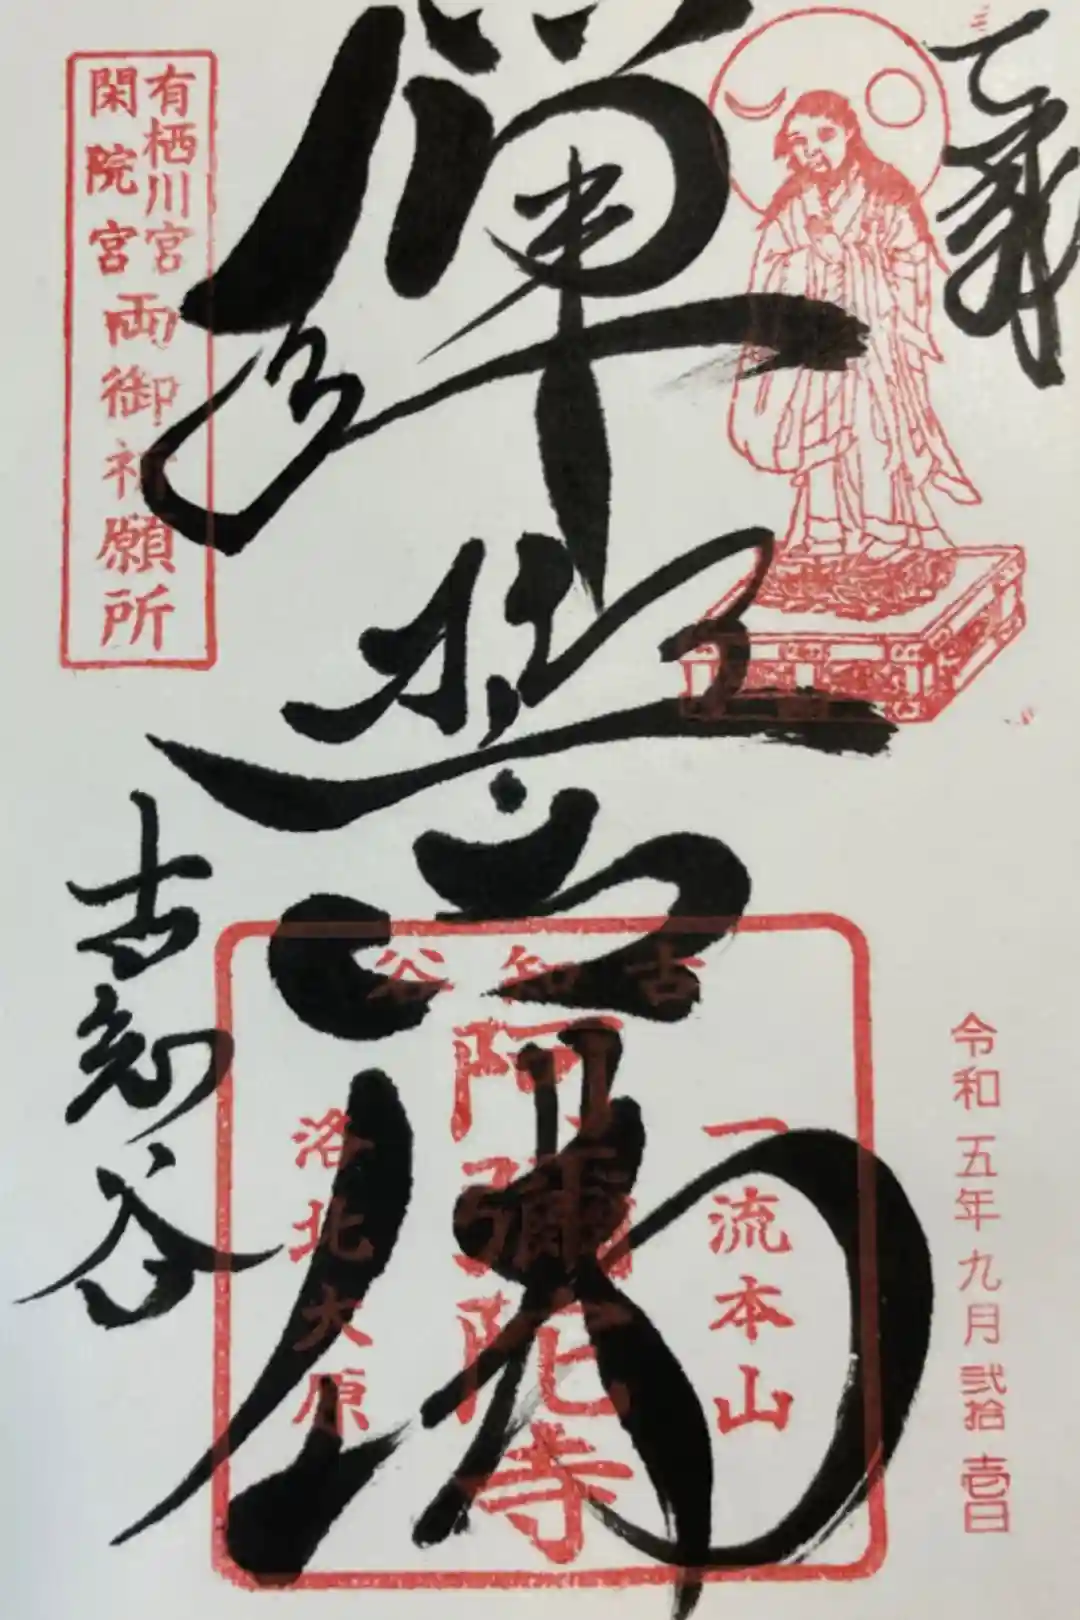 奉拝
弾誓佛
古知谷
有栖川宮
閑院宮
両御祈願所
古知谷
一流本山
阿彌陀寺
洛北大原
令和五年九月弐拾壱日